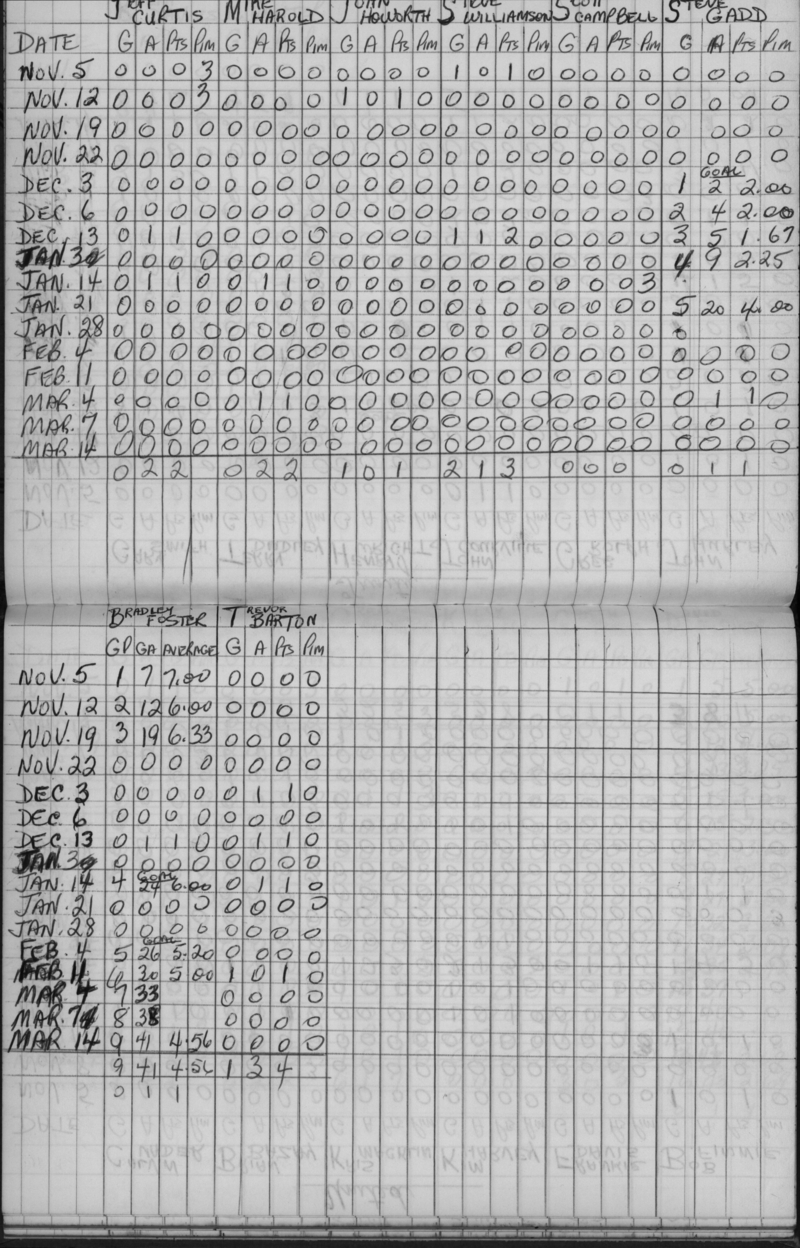 JEFF CURTIS MIKE HAROLD JOHN HOWORTH STEVE WILLIAMSON SCOTT CAMPBELL STEVE GADD
DATE G A Pts Pim G A Pts Pim G A Pts Pim G A Pts Pim G A Pts Pim G A Pts Pim
NOV. 5 0 0 0 3 0 0 0 0 0 0 0 0 1 0 1 0 0 0 0 0 0 0 0 0
NOV. 12 0 0 0 3 0 0 0 0 1 0 1 0 0 0 0 0 0 0 0 0 0 0 0 0
NOV. 19 0 0 0 0 0 0 0 0 0 0 0 0 0 0 0 0 0 0 0 0 0 0 0 0
NOV. 22 0 0 0 0 0 0 0 0 0 0 0 0 0 0 0 0 0 0 0 0 0 0 0 0
GOAL
DEC. 3 0 0 0 0 0 0 0 0 0 0 0 0 0 0 0 0 0 0 0 0 1 2 2.00
DEC. 6 0 0 0 0 0 0 0 0 0 0 0 0 0 0 0 0 0 0 0 0 2 4 2.00
DEC. 13 0 1 1 0 0 0 0 0 0 0 0 0 1 1 2 0 0 0 0 0 3 5 1.67
JAN. 3 0 0 0 0 0 0 0 0 0 0 0 0 0 0 0 0 0 0 0 0 4 9 2.25
JAN. 14 0 1 1 0 0 1 1 0 0 0 0 0 0 0 0 0 0 0 0 3
JAN. 21 0 0 0 0 0 0 0 0 0 0 0 0 0 0 0 0 0 0 0 0 5 20 4.00
JAN. 28 0 0 0 0 0 0 0 0 0 0 0 0 0 0 0 0 0 0 0 0 0
FEB. 4 0 0 0 0 0 0 0 0 0 0 0 0 0 0 0 0 0 0 0 0 0 0 0 0
FEB. 11 0 0 0 0 0 0 0 0 0 0 0 0 0 0 0 0 0 0 0 0 0 0 0 0
MAR. 4 0 0 0 0 0 1 1 0 0 0 0 0 0 0 0 0 0 0 0 0 0 1 1 0
MAR. 7 0 0 0 0 0 0 0 0 0 0 0 0 0 0 0 0 0 0 0 0 0 0 0 0
MAR. 14 0 0 0 0 0 0 0 0 0 0 0 0 0 0 0 0 0 0 0 0 0 0 0 0
0 2 2 0 2 2 1 0 1 2 1 3 0 0 0 0 1 1
BRADLEY FOSTER TREVOR BARTON
GP GA AVERAGE G A Pts Pim
NOV. 5 1 7 7.00 0 0 0 0
NOV. 12 2 12 6.00 0 0 0 0
NOV. 19 3 19 6.33 0 0 0 0
NOV. 22 0 0 0 0 0 0 0 0
DEC. 3 0 0 0 0 0 1 1 0
DEC. 6 0 0 0 0 0 0 0 0
DEC. 13 0 1 1 0 0 1 1 0
JAN. 3 0 0 0 0 0 0 0 0
GOAL
JAN. 14 4 24 6.00 0 1 1 0
JAN. 21 0 0 0 0 0 0 0 0
JAN. 28 0 0 0 0 0 0 0 0
GOAL
FEB. 4 5 26 5.20 0 0 0 0
FEB 11 6 30 5.00 1 0 1 0
MAR. 4 7 33 0 0 0 0
MAR. 7 8 38 0 0 0 0
MAR 14 9 41 4.56 0 0 0 0
9 41 4.56 1 3 4
0 1 1